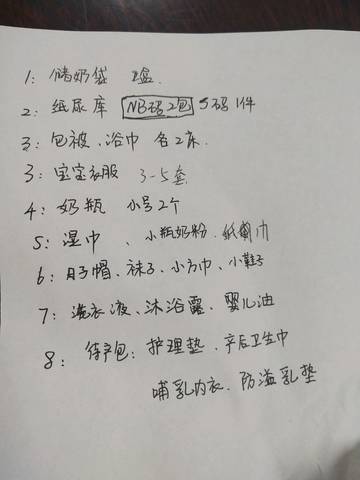 1: 储奶袋 2盒
2: 纸尿库 NB码2包 S码1件
3: 包被、浴巾 各2床
3: 宝宝衣服 3-5套
4: 奶瓶 小号2个
5: 湿巾、小瓶奶粉、纸巾
6: 月子帽、袜子、小方巾、小鞋子
7: 洗衣液、沐浴露、婴儿油
8: 待产包: 护理垫、产后卫生巾
哺乳内衣、防溢乳垫